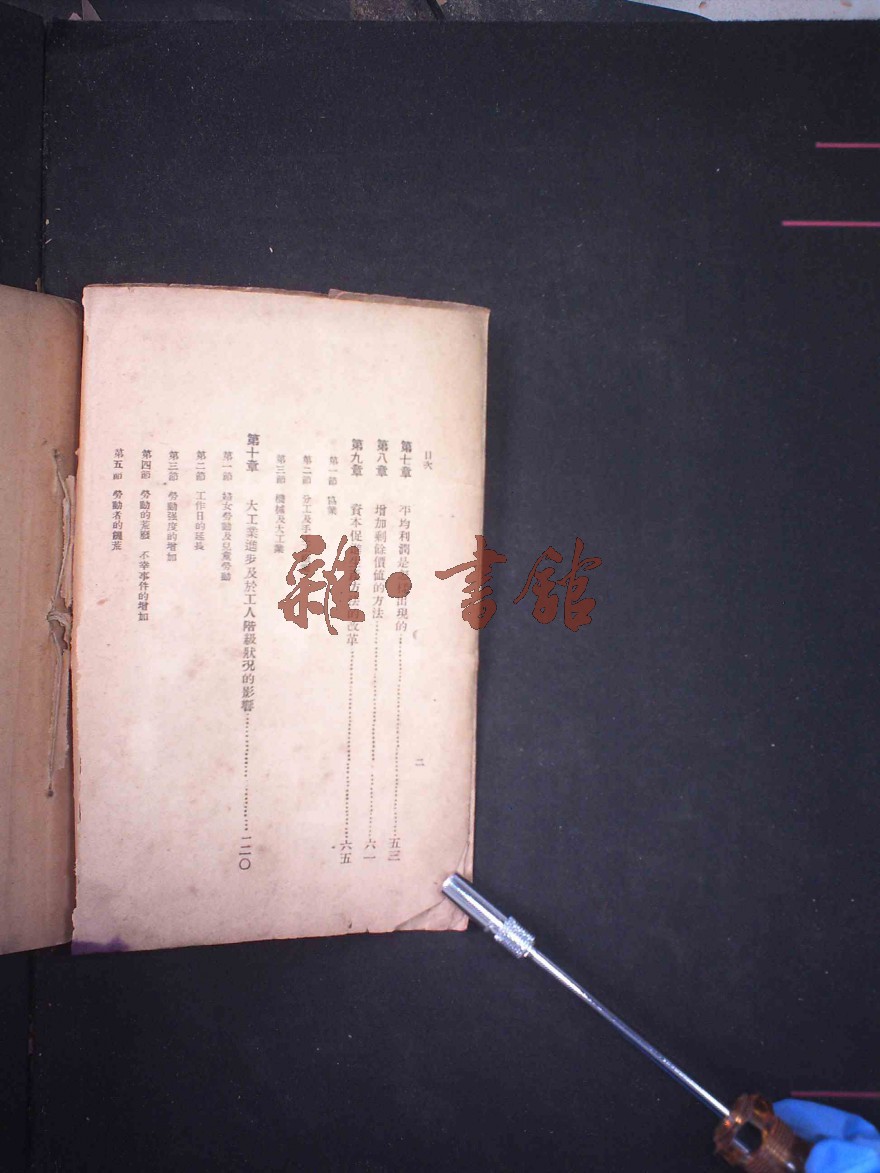 目次
二
第七章 平均利潤是 出現的 五三
第八章 增加剩餘價值的方法 六一
第九章 資本促進 方法 改革 六五
第一節 協業
第二節 分工及手
第三節 機械及大工業
第十章 大工業進步及於工人階級狀況的影響 一二〇
第一節 婦女勞動及兒童勞動
第二節 工作日的延長
第三節 勞動强度的增加
第四節 勞動的荒廢 不幸事件的增加
第五節 勞動者的饑荒
雜·書館